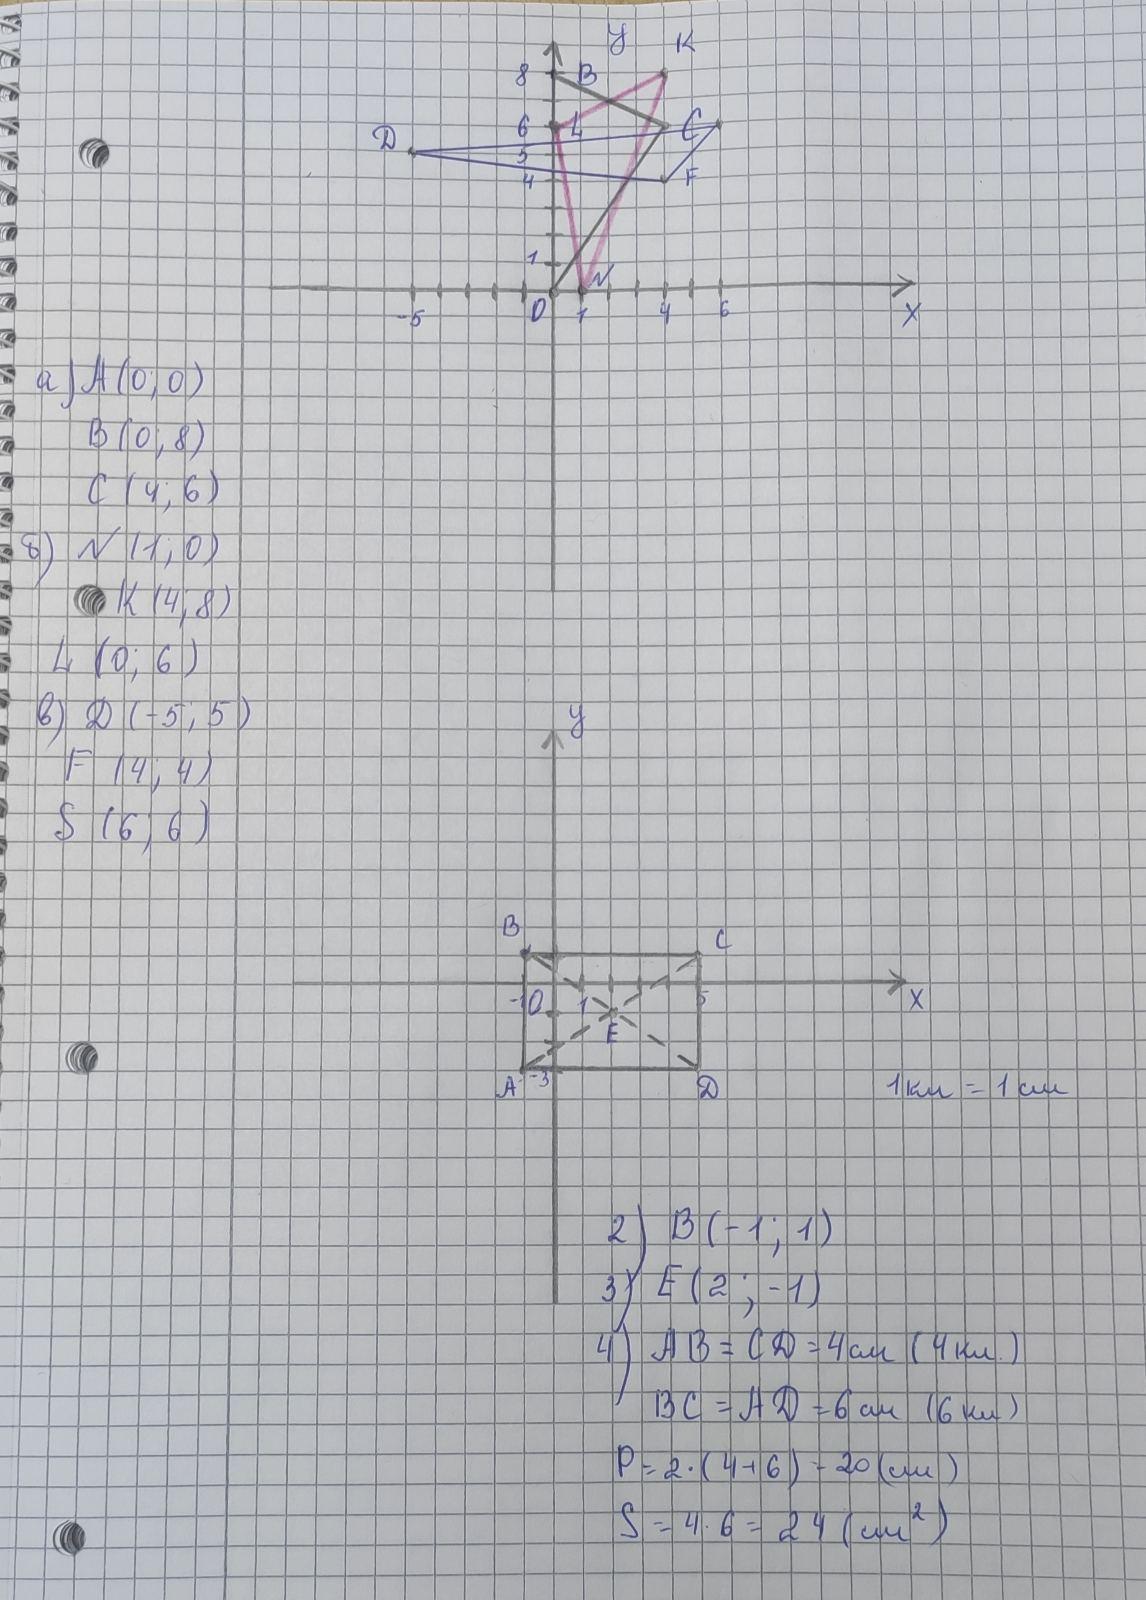 y K
8 B
6 L C
D 5
4 F
1
N
-5 0 1 4 6 x
а) A (0; 0)
B (0; 8)
C (4; 6)
б) N (1; 0)
K (4; 8)
L (0; 6)
в) D (-5; 5)
F (4; 4)
S (6; 6)
y
B C
-1 0 1 5 x
E
A -3 D
1 км = 1 см
2) B (-1; 1)
3) E (2; -1)
4) AB = CD = 4 см (4 км.)
BC = AD = 6 см (6 км)
P = 2·(4+6) = 20 (см)
S = 4·6 = 24 (см²)